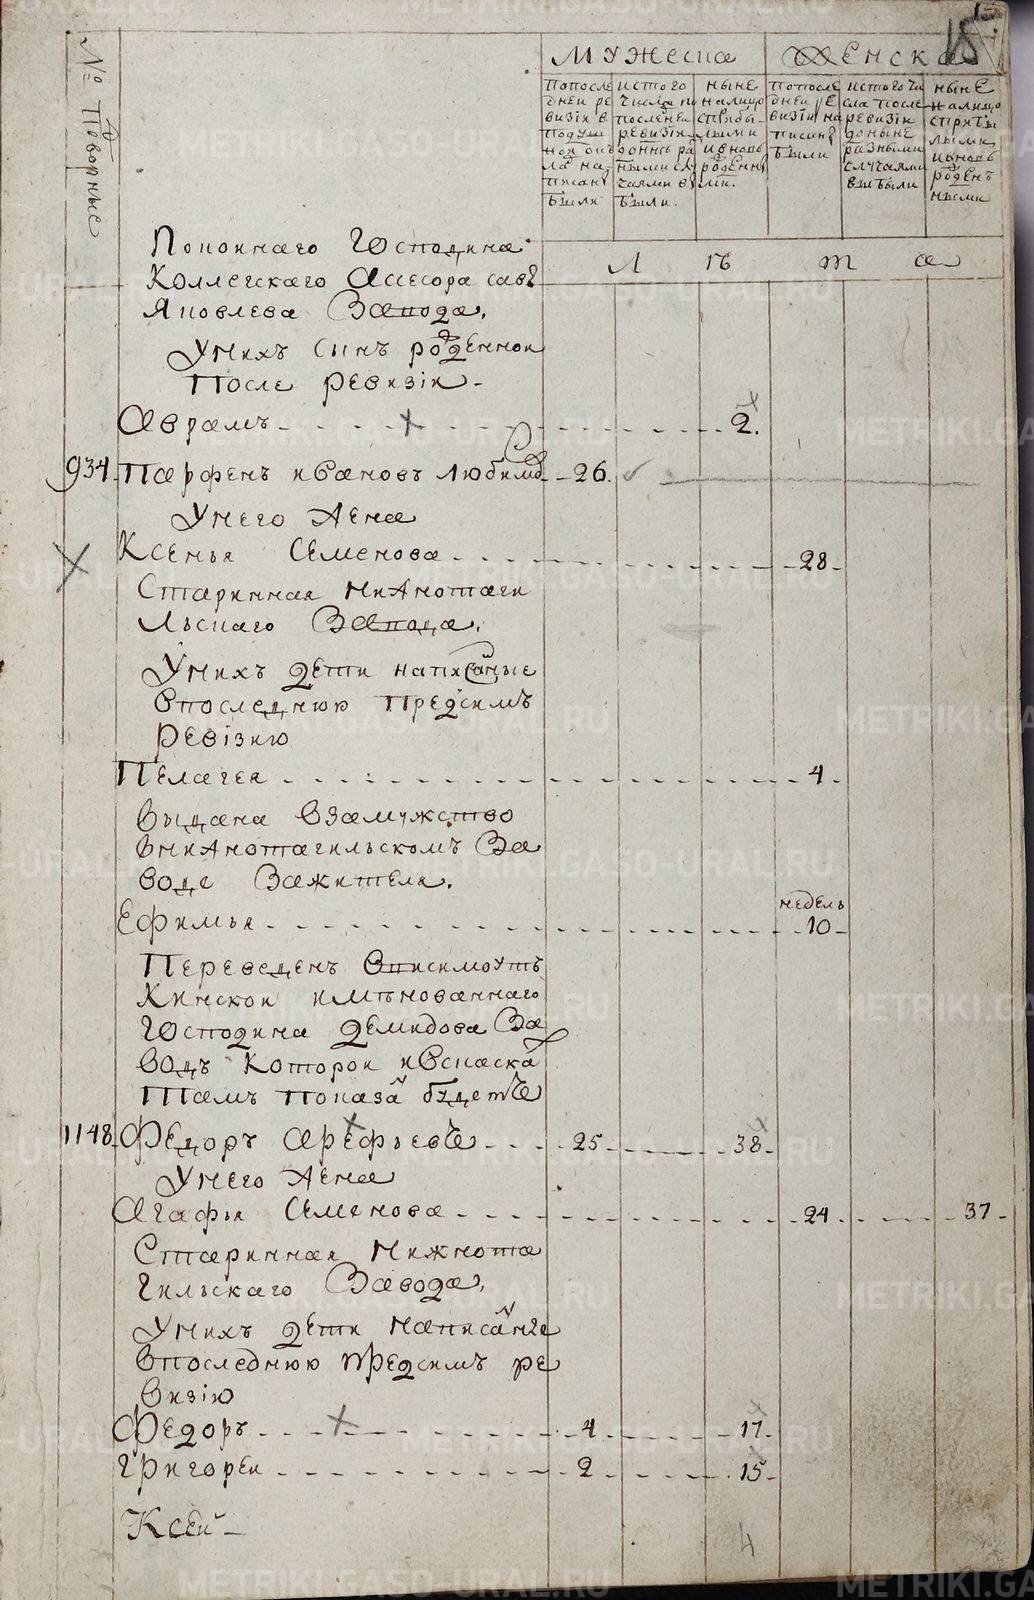 15
№ Подворные
Мужеска
Женска
Попосле
дней ре
визіи в
подуш
ной бы
ла на
писанꙋ
были
истого
числа по
последней
ревизіи
доныне ра
зными слу
чаями вы
были.
ныне
налицо
спрыбы
лыми
ивновь
рожденны
ми.
Попосле
дней Ре
визіи на
писанꙋ
были
истого чи
сла после
ревизіи
доныне
разными
случаями
выбыли
ныне
налицо
спрыбы
лыми
ивновь
рожденъ
ными
Л ѣ т а
Покойнаго Господина
Коллегскаго Ассесора савꙋ
Яковлева Завода.
Унихъ сынъ рожденной
После ревизіи
Аврамъ 2.
934. Парфенъ ивановъ Любимов 26.
Унего Жена
Ксенья Семенова 28
Старинная нижнотаги
льскаго Завода.
Унихъ дети написаные
впоследнюю предсимъ
Ревізию
Пелагея 4
выдана взамужство
внижнотагильскомъ За
воде Зажителя.
недель
Ефимья 10
Переведенъ вписимоуть
Кинской имянованнаго
Господина Демидова За
водъ которой ивспаска
Тамъ показа будетъ
1148. Федоръ Арефьевъ 25 38
Унего Жена
Агафья Семенова 24 37
Старинная Нижнота
гильскаго Завода.
Унихъ дети написанꙋе
впоследнюю предсимъ ре
визію
Федоръ 4 17
Григорей 2 15
Ксен
4
METRIKI.GASO-URAL.RU